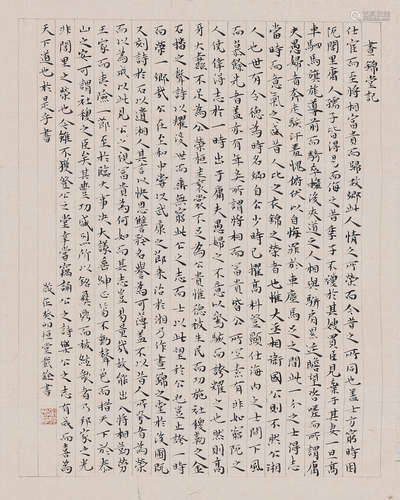 晝錦堂記
仕宦而至將相富貴而歸故鄉此人情之所榮而今昔之所同也蓋士方窮時困
阨閭里庸人孺子皆得易而侮之若季子不禮於其嫂買臣見棄於其妻一旦高
車駟馬旗旄導前而騎卒擁後夾道之人相與駢肩累迹瞻望咨嗟而所謂庸
夫愚婦者奔走駭汗羞愧俯伏以自悔罪於車塵馬足之間此一介之士得志
當時而意氣之盛昔人比之衣錦之榮者也惟大丞相衛國公則不然公相
人也世有令德為時名卿自公少時已擢高科登顯仕海內之士聞下風
而慕餘光者蓋亦有年矣所謂將相而富貴皆公所宜素有非如窮阨之
人僥倖得志於一時出于庸夫愚婦之不意以驚駭而誇耀之也然則高
牙大纛不足為公榮桓圭袞裳不足為公貴惟德被生民而功施社稷勒之金
石播之聲詩以耀後世而垂無窮此公之志而士以此望於公也豈止誇一時
而榮一鄉哉公在至和中嘗以武康之節來治於相乃作晝錦之堂於後圃既
又刻詩於石以遺相人其言以快恩讎矜名譽為可薄蓋不以昔人所誇者為榮
而以為戒以此見公之視富貴為何如而其志豈易量哉故能出入將相勤勞
王家而夷險一節至於臨大事決大議垂紳正笏不動聲色而措天下於泰
山之安可謂社稷之臣矣其豐功盛烈所以銘彝鼎而被絃歌者乃邦家之光
非閭里之榮也余雖不獲登公之堂幸嘗竊誦公之詩樂公之志有成而喜為
天下道也於是乎書
歲在癸卯堂戴書